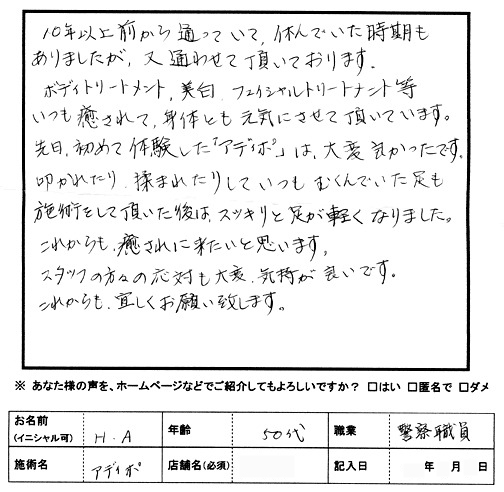 10年以上前から通っていて、休んでいた時期も
ありましたが、又通わせて頂いております。
ボディトリートメント、美白、フェイシャルトリートメント等
いつも癒されて、身体とも元気にさせて頂いています。
先日、初めて体験した「アディポ」は、大変良かったです。
叩かれたり、揉まれたりしていつもむくんでいた足も
施術をして頂いた後は、スッキリと足が軽くなりました。
これからも、癒されに来たいと思います。
スタッフの方々の応対も大変、気持が良いです。
これからも、宜しくお願い致します。
※ あなた様の声を、ホームページなどでご紹介してもよろしいですか？ □はい □匿名で □ダメ
お名前 (イニシャル可) H.A 年齢 50代 職業 警察職員
施術名 アディポ 店舗名(必須) 記入日 年 月 日